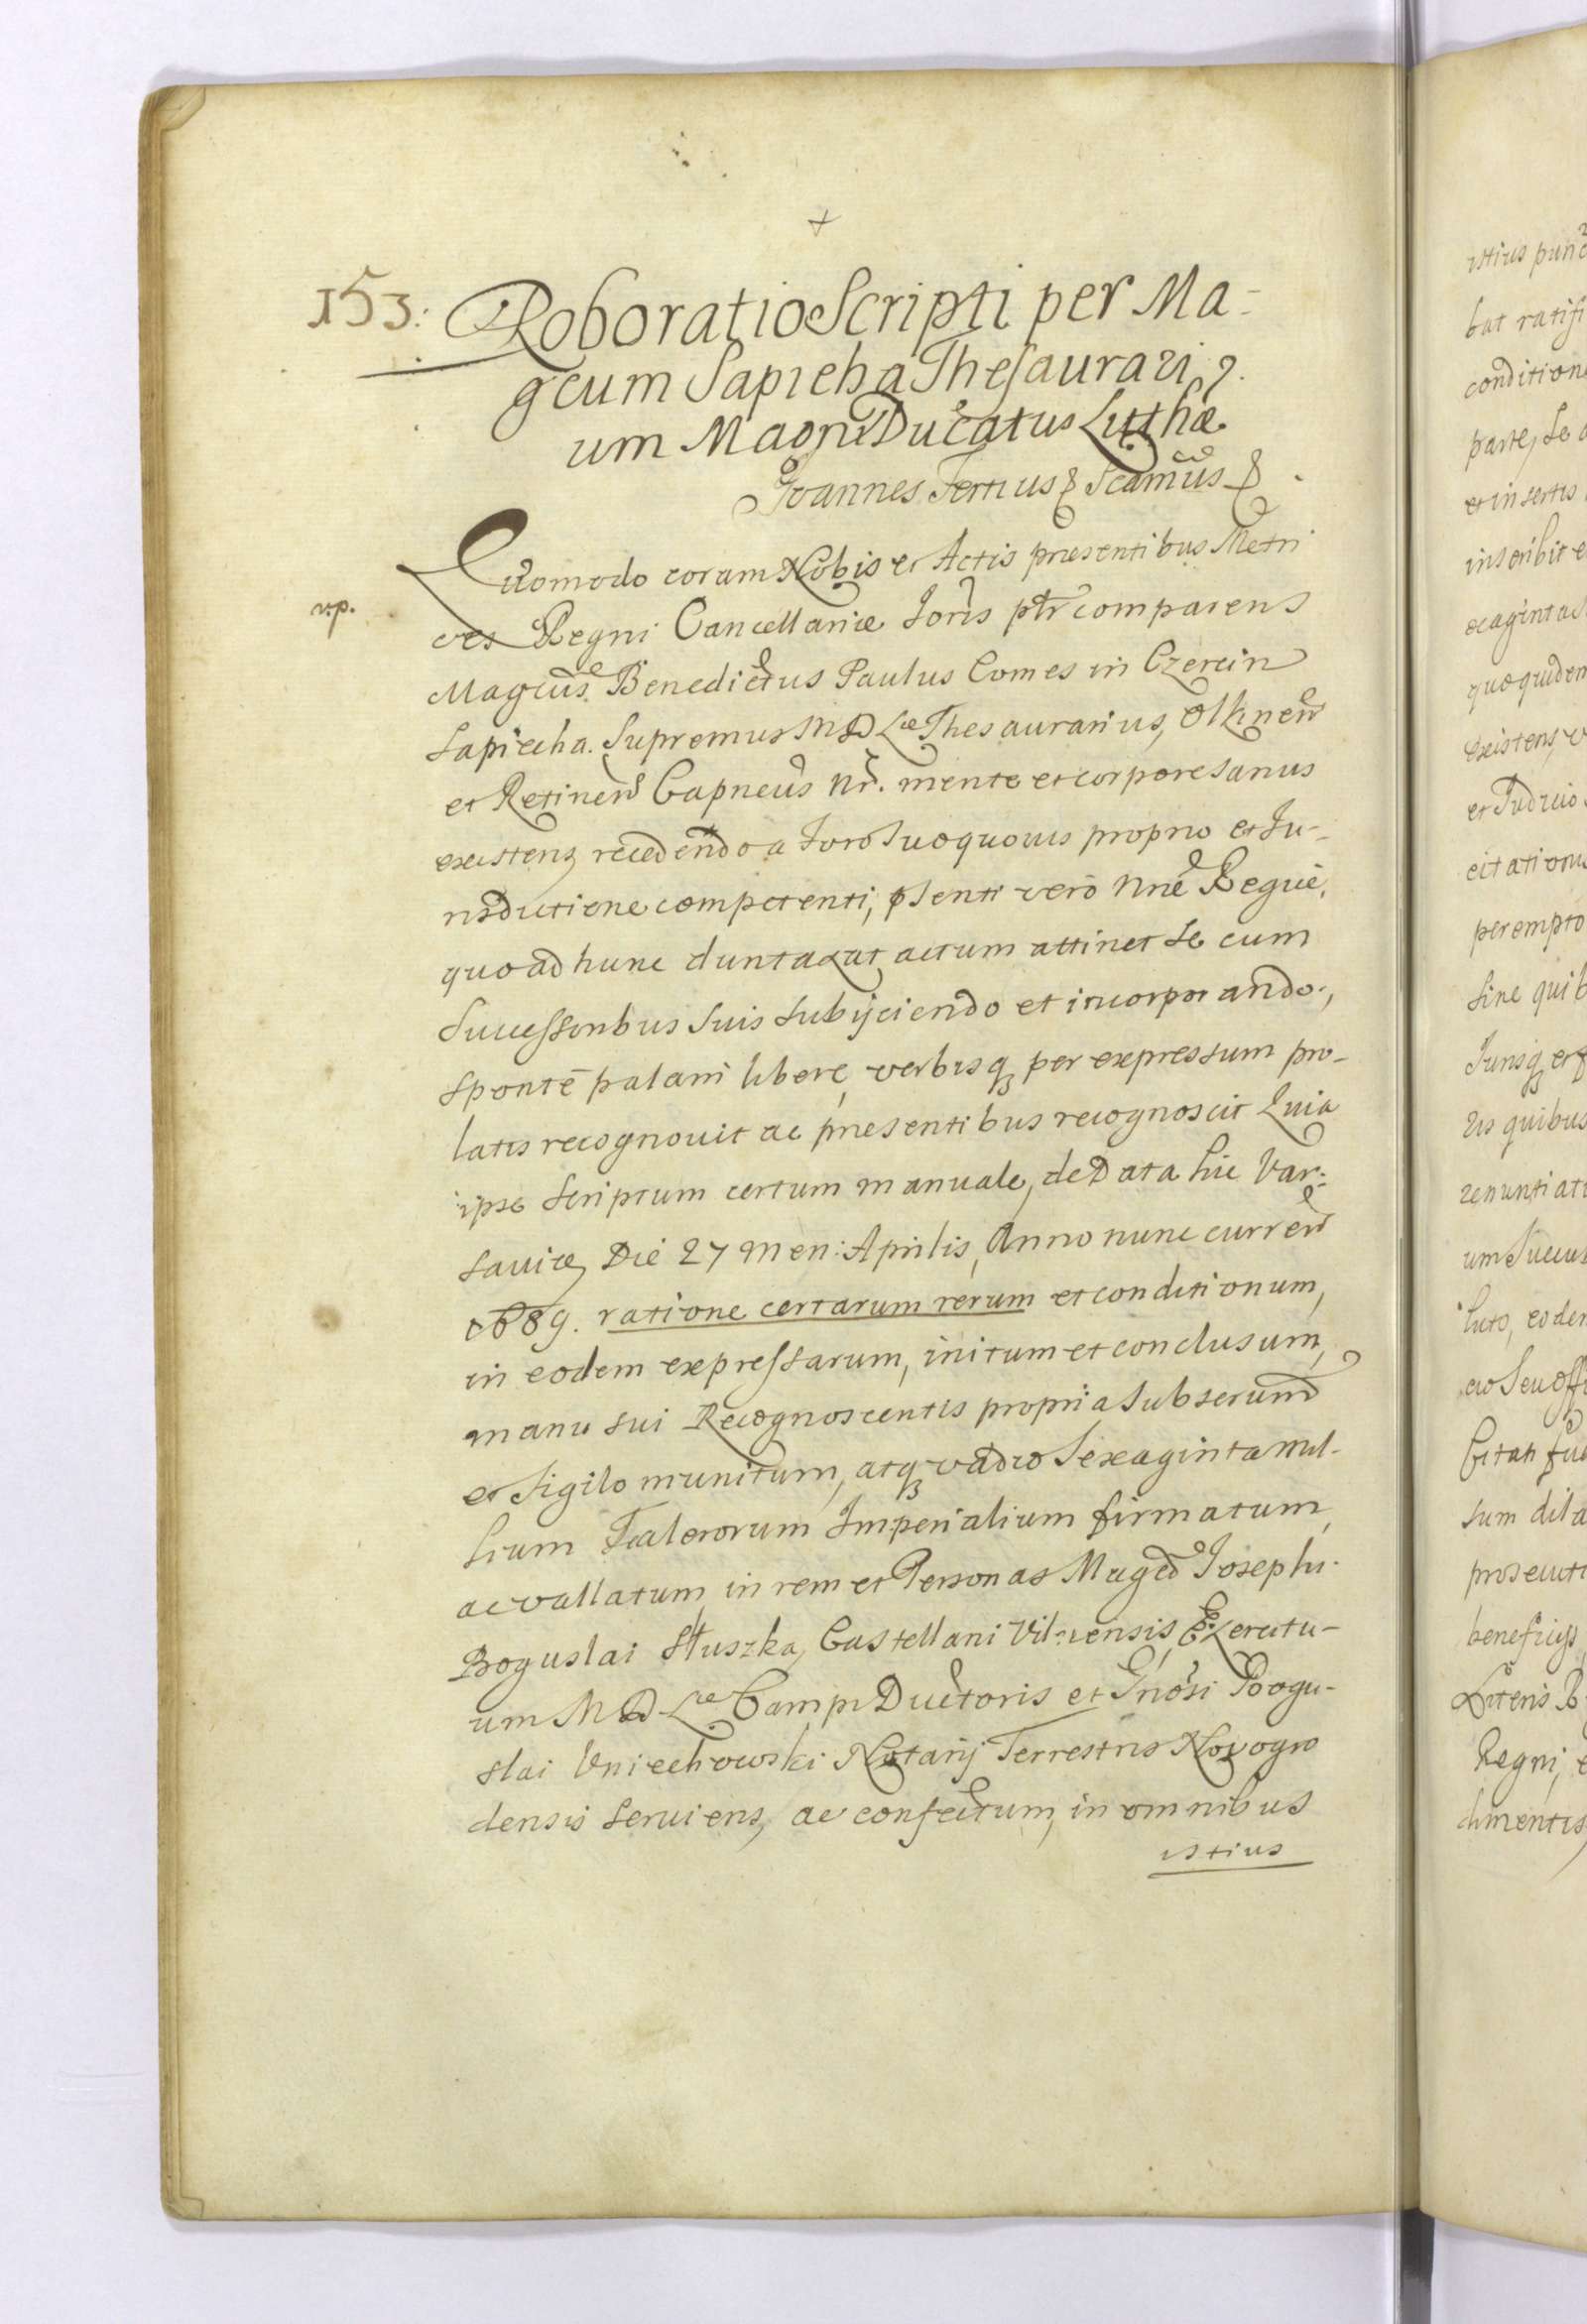 +
153: Roboratio Scripti per Ma-
gcum Sapieha Thesaurari-
um Magni Ducatus Litthæ
Joannes Tertius & Scamus &.
Quomodo coram Nobis et Actis præsentibus Metri
ces Regni Cancellariæ Joris ptr comparens
Magcus Benedictus Paulus Comes in Czerein
Sapieha. Supremus M D Læ Thesaurarius, Olkinen
et Retinen Capneus Nr. mente et corpore sanus
existens, recedendo a Foro suo quovis proprio et Ju-
risdictione competenti, psenti vero Nrae Regiae,
quo ad hunc duntaxat actum attinet se cum
Successoribus suis subijciendo et incorporando,
Sponte palam libere, verbisq per expressum pro-
latis recognovit ac præsentibus recognoscit Quia
ipse Scriptum certum manuale, de Data hic Var:
saviæ, Die 27 Men: Aprilis, Anno nunc curren
1689. ratione certarum rerum et conditionum,
in eodem expressarum, initum et conclusum,
manu sui Recognoscentis propria subscrium
et Sigilo munitum, atq vadio Sexaginta mil-
lium Talerorum Imperialium firmatum,
ac vallatum, in rem et Personas Magcd Josephi
Boguslai Słuszka, Castellani Vilnensis, Exercitu-
um M D Læ Campi Ductoris et Gnosi Bogu-
slai Uniechowski Notarij Terrestris Novogro
densis serviens, ac confectum, in omnibus
istius
v.p.
istius punc
bat ratifi
condition
parte, se
et in sertis
inscribit e
exaginta
quoquidem
existens, v
et Judicio
citation
perempto
sine quib
Jurisq et
quibus
renuntiati
um Succes
eoden
cio seu offi
sum dila
prosecuti
beneficijs
Literis R
Regni, e
dimentis,